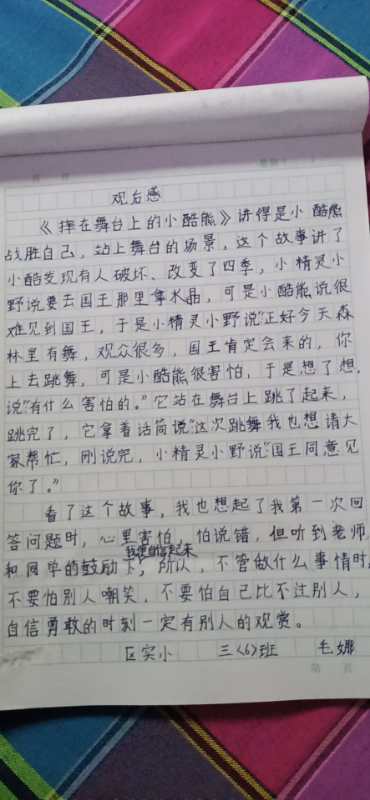 观后感
《摔在舞台上的小酷熊》讲得是小酷熊
战胜自己，站上舞台的场景，这个故事讲了
小酷发现有人破坏、改变了四季，小精灵小
野说要去国王那里拿水晶，可是小酷熊说很
难见到国王，于是小精灵小野说“正好今天森
林里有舞，观众很多，国王肯定会来的，你
上去跳舞，可是小酷熊很害怕，于是想了想，
说“有什么害怕的。”它站在舞台上跳了起来，
跳完了，它拿着话筒说“这次跳舞我也想请大
家帮忙，刚说完，小精灵小野说“国王同意见
你了。”
看了这个故事，我也想起了我第一次回
答问题时，心里害怕，怕说错，但听到老师
我便自信起来
和同学的鼓励下，所以，不管做什么事情时，
不要怕别人嘲笑，不要怕自己比不过别人，
自信勇敢的时刻一定有别人的观赏。
区实小 三〈6〉班 毛娜